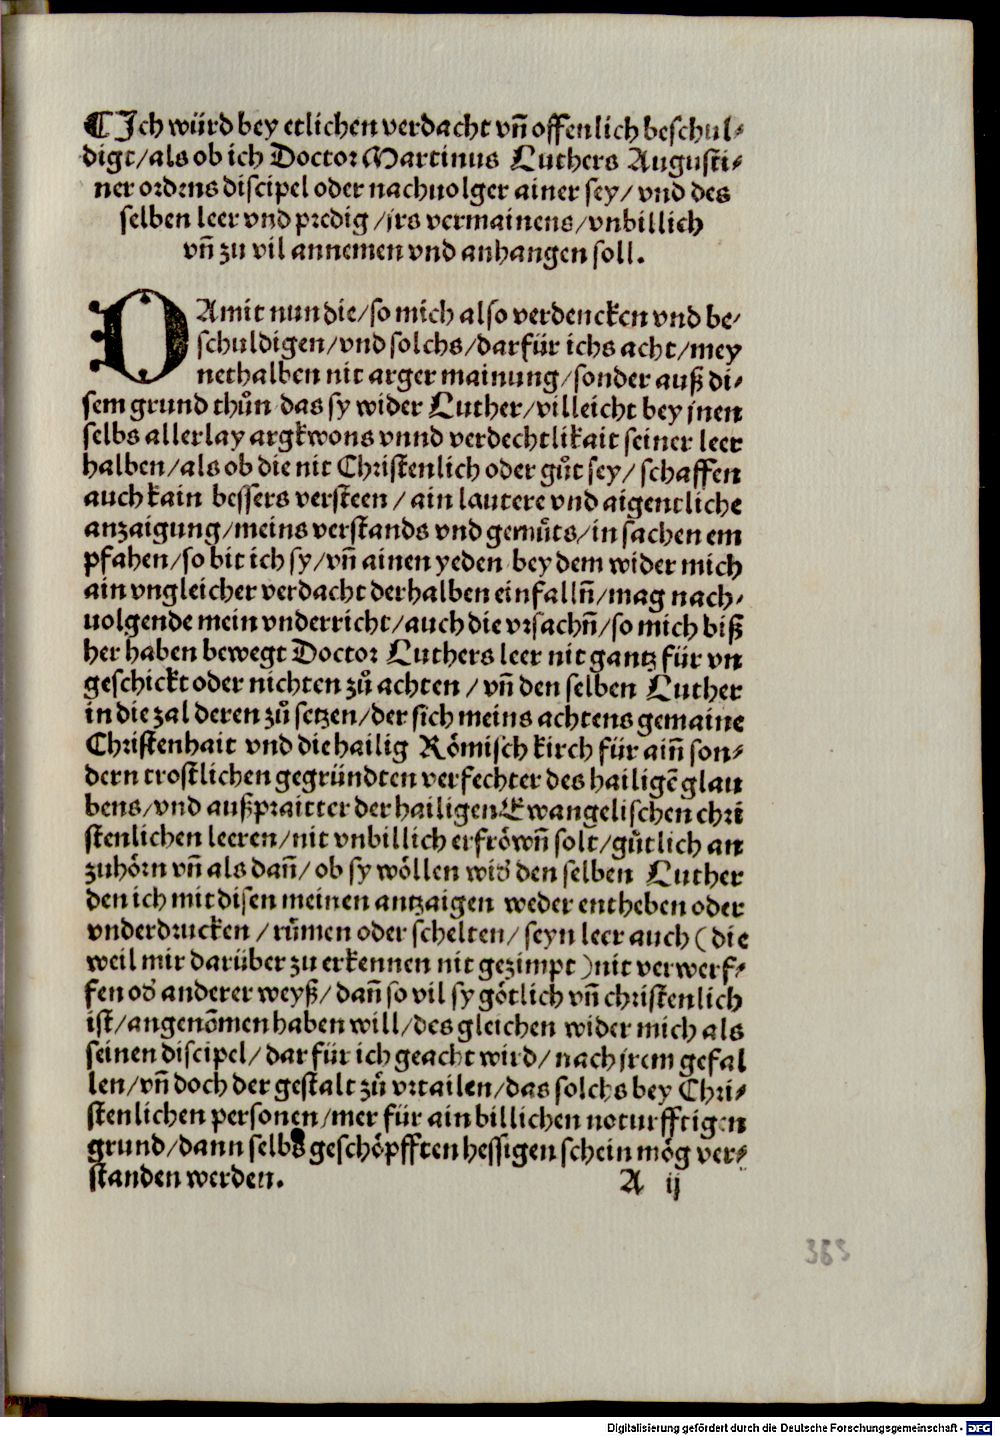 ¶Ich würd bey etlichen verdacht vn̄ offenlich beschul⸗
digt/als ob ich Doctor Martinus Luthers Augusti⸗
ner ordens discipel oder nachuolger ainer sey/ vnd des
selben leer vnd predig/jrs vermainens/vnbillich
vn̄ zu vil annemen vnd anhangen soll.
DAmit nun die/so mich also verdencken vnd be⸗
schuldigen/vnd solchs/darfür ichs acht/mey
nethalben nit arger mainung/sonder auß di⸗
sem grund thůn das sy wider Luther/villeicht bey jnen
selbs allerlay argkwons vnnd verdechtlikait seiner leer
halben/als ob die nit Christenlich oder gůt sey/ schaffen
auch kain bessers versteen/ ain lautere vnd aigentliche
anzaigung/meins verstands vnd gemůts/in sachen em
pfahen/so bit ich sy/vn̄ ainen yeden bey dem wider mich
ain vngleicher verdacht derhalben einfalln̄/mag nach⸗
uolgende mein vnderricht/auch die vrsachn̄/so mich biß
her haben bewegt Doctor Luthers leer nit gantz für vn
geschickt oder nichten zů achten/vn̄ den selben Luther
in die zal deren zů setzen/der sich meins achtens gemaine
Christenhait vnd die hailig Römisch kirch für ain̄ son⸗
dern trostlichen gegründten verfechter des hailigē glau
bens/vnd außpraitter der hailigen Ewangelischen chri
stenlichen leeren/nit vnbillich erfröwn̄ solt/gůtlich an
zuhörn vn̄ als dan̄/ ob sy wöllen wid̕ den selben Luther
den ich mit disen meinen antzaigen weder entheben oder
vnderdrucken/růmen oder schelten/seyn leer auch (die
weil mir darüber zu erkennen nit gezimpt) nit verwerf⸗
fen od̕ anderer weyß/dan̄ so vil sy götlich vn̄ christenlich
ist/angenōmen haben will/des gleichen wider mich als
seinen discipel/dar für ich geacht wird/nach jrem gefal
len/vn̄ doch der gestalt zů vrtailen/das solchs bey Chri⸗
stenlichen personen/mer für ain billichen noturfftigen
grund/dann selbs geschöpfften hessigen schein mög ver⸗
standen werden.
A ij
363
Digitalisierung gefördert durch die Deutsche Forschungsgemeinschaft - DFG